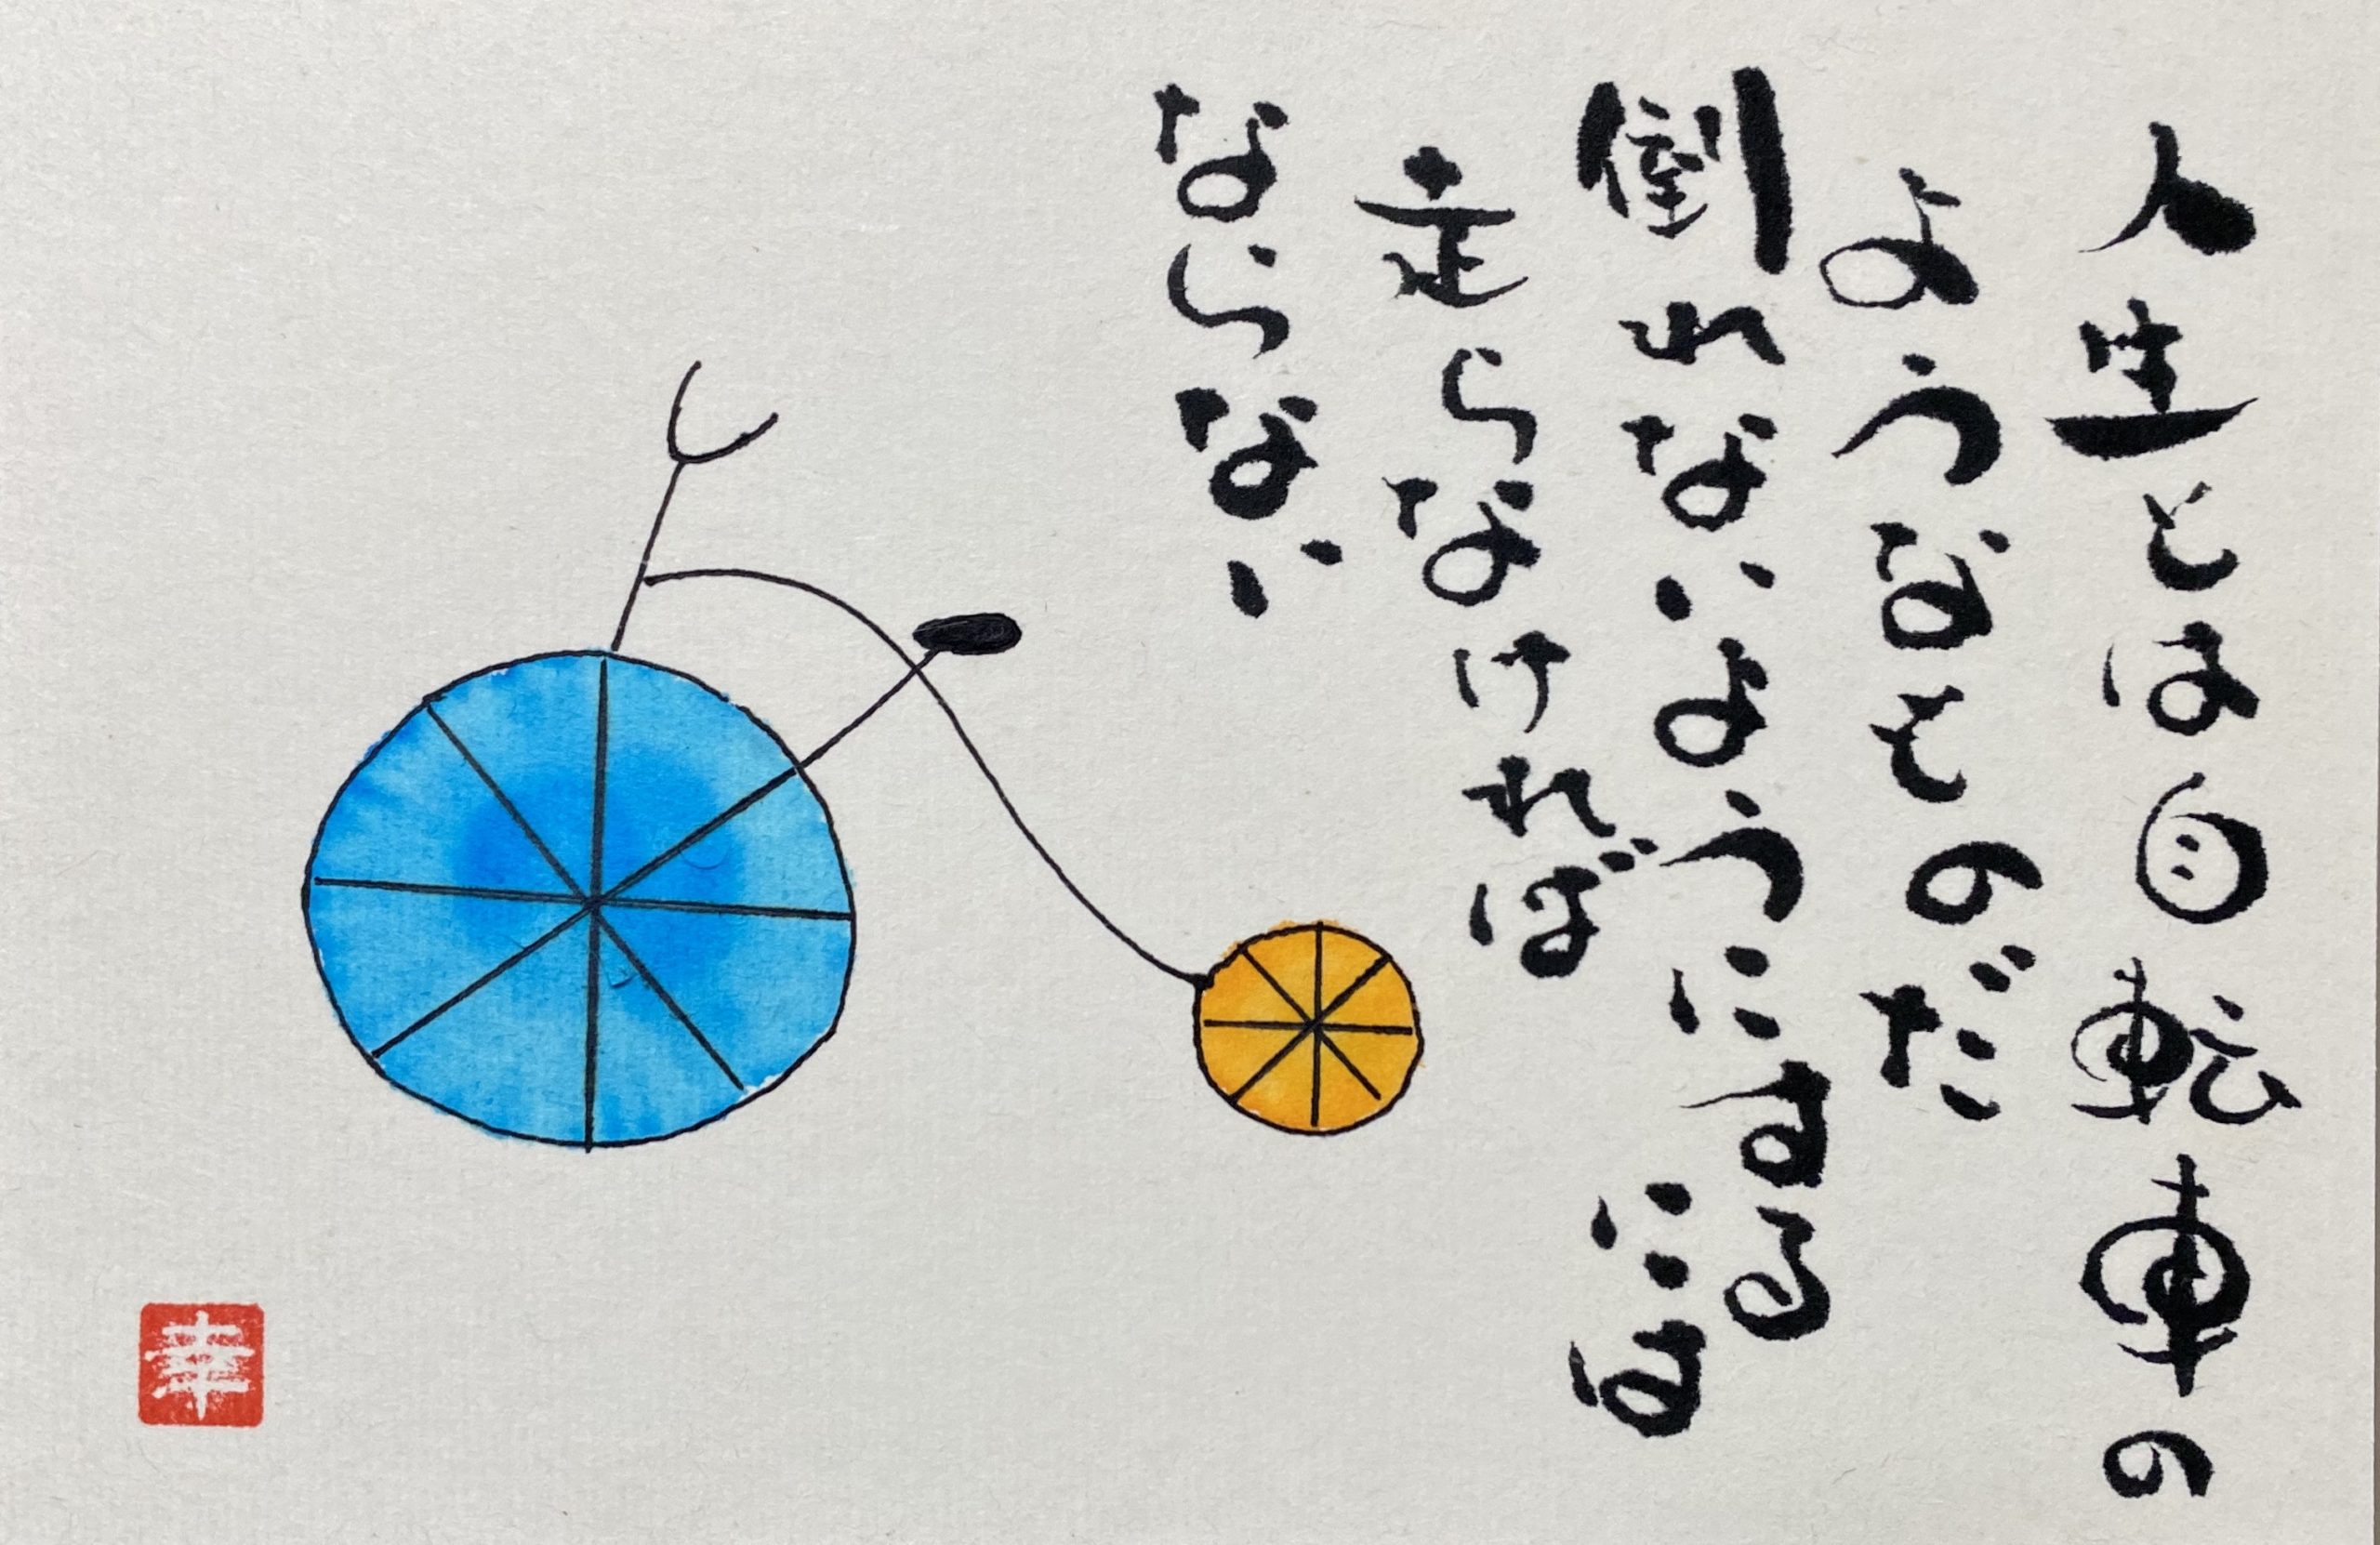 人生とは自転車の
ようなものだ
倒れないようにする
には
走らなければ
ならない
幸